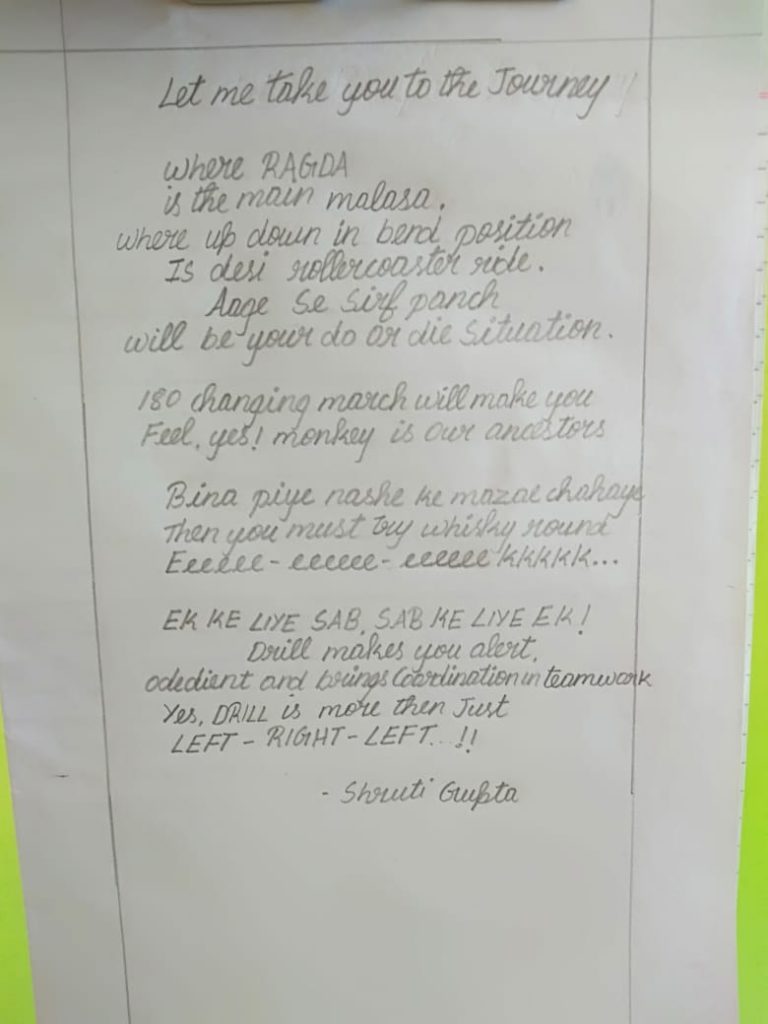 Let me take you to the Journey !!
where RAGDA
is the main malasa.
where up down in bend position
Is desi rollercoaster ride.
Aage Se Sirf panch
will be your do or die Situation.
180 changing march will make you
Feel, yes! monkey is our ancestors
Bina piye nashe ke mazae chahaye
Then you must try whisky round
Eeeeee - eeeeee - eeeeee kkkkk...
EK KE LIYE SAB, SAB KE LIYE EK!
Drill makes you alert,
odedient and brings Coordination in teamwork
Yes, DRILL is more then Just
LEFT - RIGHT - LEFT...!!
- Shruti Gupta